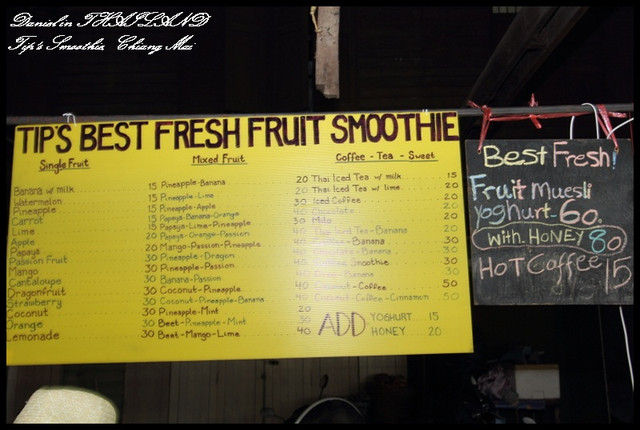 Daniel in THAILAND
Tip's Smoothie, Chiang Mai
TIP'S BEST FRESH FRUIT SMOOTHIE
Single Fruit
Banana w/ milk 15
Watermelon 15
Pineapple 15
Carrot 15
Lime 15
Apple 20
Papaya 20
Passion Fruit 30
Mango 30
Cantaloupe 30
Dragonfruit 30
Strawberry 30
Coconut 30
Orange 30
Lemonade 30
Mixed Fruit
Pineapple-Banana 20
Pineapple-Lime 20
Pineapple-Apple 30
Papaya-Banana-Orange 40
Papaya-Lime-Pineapple 30
Papaya-Orange-Passion 40
Mango-Passion-Pineapple 40
Pineapple-Dragon 40
Pineapple-Passion 40
Banana-Passion 40
Coconut-Pineapple 40
Coconut-Pineapple-Banana 40
Pineapple-Mint 20
Beet-Pineapple-Mint 30
Beet-Mango-Lime 40
Coffee - Tea - Sweet
Thai Iced Tea w/ milk 15
Thai Iced Tea w/ lime 20
Iced Coffee 20
Chocolate 20
Milo 20
Tea-Banana 20
-Banana 30
-Banana 30
Smoothie 30
Banana 30
-Coffee 50
Coconut-Coffee-Cinnamon 50
ADD YOGHURT 15
HONEY 20
Best Fresh!
Fruit Muesli
yoghurt-60.
with HONEY 80
HOT Coffee 15